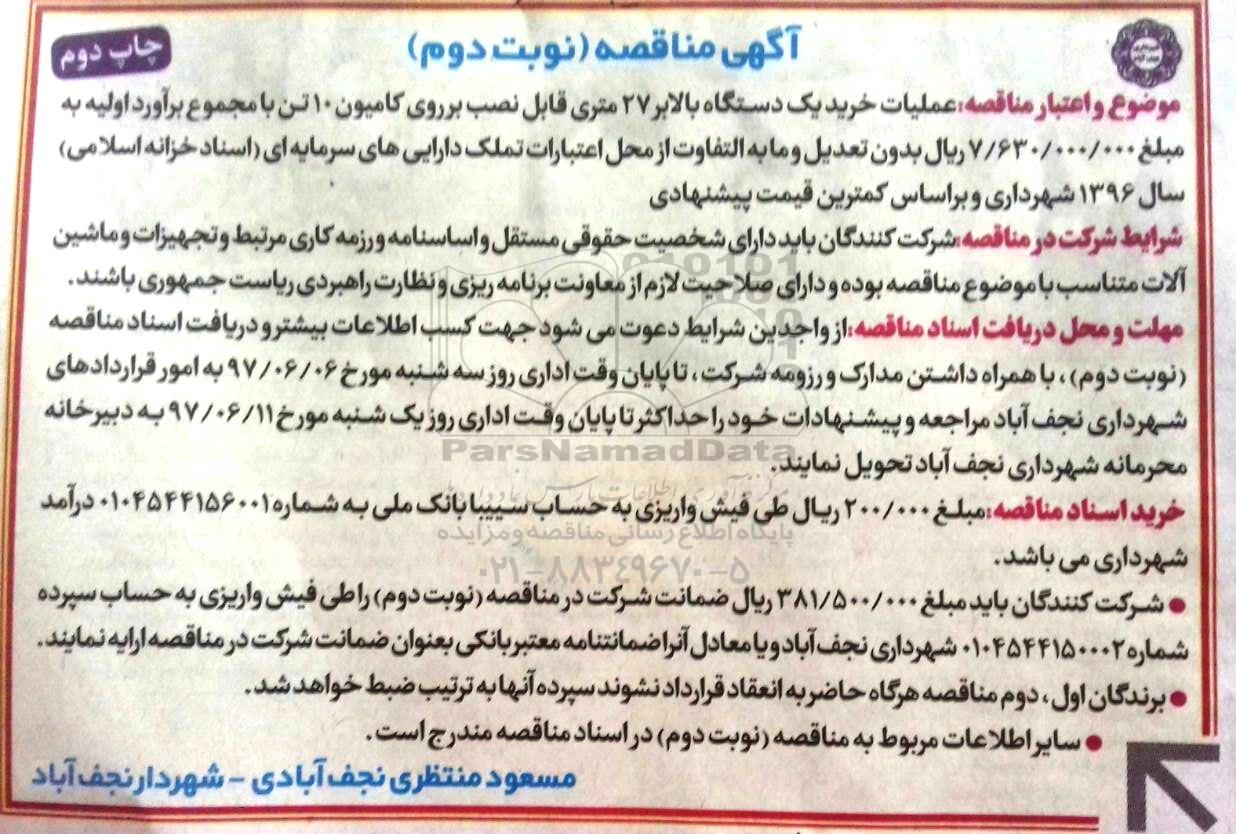 آگهی مناقصه (نوبت دوم)
چاپ دوم
موضوع و اعتبار مناقصه: عملیات خرید یک دستگاه بالابر ۲۷ متری قابل نصب بر روی کامیون ۱۰ تن با مجموع برآورد اولیه به
مبلغ ۷/۶۳۰/۰۰۰/۰۰۰ ریال بدون تعدیل و مابه التفاوت از محل اعتبارات تملک دارایی های سرمایه ای (اسناد خزانه اسلامی)
سال ۱۳۹۶ شهرداری و براساس کمترین قیمت پیشنهادی
شرایط شرکت در مناقصه: شرکت کنندگان باید دارای شخصیت حقوقی مستقل و اساسنامه و رزمه کاری مرتبط و تجهیزات و ماشین
آلات متناسب با موضوع مناقصه بوده و دارای صلاحیت لازم از معاونت برنامه ریزی و نظارت راهبردی ریاست جمهوری باشند.
مهلت و محل دریافت اسناد مناقصه: از واجدین شرایط دعوت می شود جهت کسب اطلاعات بیشتر و دریافت اسناد مناقصه
(نوبت دوم)، با همراه داشتن مدارک و رزومه شرکت، تا پایان وقت اداری روز سه شنبه مورخ ۹۷/۰۶/۰۶ به امور قراردادهای
شهرداری نجف آباد مراجعه و پیشنهادات خود را حداکثر تا پایان وقت اداری روز یک شنبه مورخ ۹۷/۰۶/۱۱ به دبیرخانه
ParsNamadData
محرمانه شهرداری نجف آباد تحویل نمایند.
مرکز فرآوری اطلاعات پارس نماد داده ها
خرید اسناد مناقصه: مبلغ ۲۰۰/۰۰۰ ریال طی فیش واریزی به حساب سیبا بانک ملی به شماره ۰۱۰۴۵۴۴۱۵۶۰۰۱ درآمد
پایگاه اطلاع رسانی مناقصه و مزایده
شهرداری می باشد.
۰۲۱-۸۸۳۴۹۶۷۰-۵
● شرکت کنندگان باید مبلغ ۳۸۱/۵۰۰/۰۰۰ ریال ضمانت شرکت در مناقصه (نوبت دوم) را طی فیش واریزی به حساب سپرده
شماره ۰۱۰۴۵۴۴۱۵۰۰۰۲ شهرداری نجف آباد و یا معادل آنرا ضمانتنامه معتبر بانکی بعنوان ضمانت شرکت در مناقصه ارایه نمایند.
● برندگان اول، دوم مناقصه هرگاه حاضر به انعقاد قرارداد نشوند سپرده آنها به ترتیب ضبط خواهد شد.
● سایر اطلاعات مربوط به مناقصه (نوبت دوم) در اسناد مناقصه مندرج است.
مسعود منتظری نجف آبادی - شهردار نجف آباد